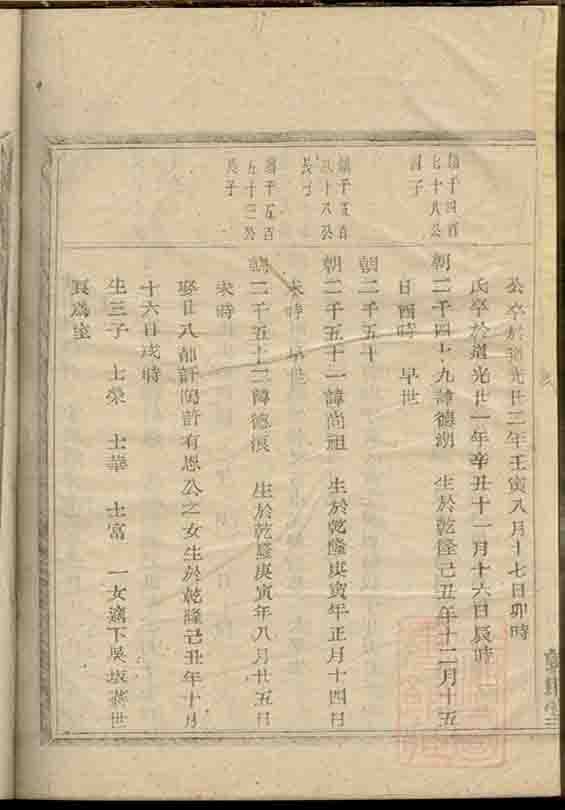 公卒於道光廿二年壬寅八月十七日卯時
氏卒於道光廿一年辛丑十一月十六日辰時
千四百
七十八公
四子
朝二千四十九諱德湖 生於乾隆己丑年十二月十五
日酉時 早世
朝二千五十
千五百
八十八公
長子
朝二千五十一諱尚祖 生於乾隆庚寅年正月十四日
未時 早世
千五百
五十三公
長子
朝二千五十二諱德 生於乾隆庚寅年八月廿五日
未時
娶廿八都許閣許有恩公之女生於乾隆己丑年十月
十六日戌時
生三子 士榮 士華 士富 一女適下吳坂蔣世
為室